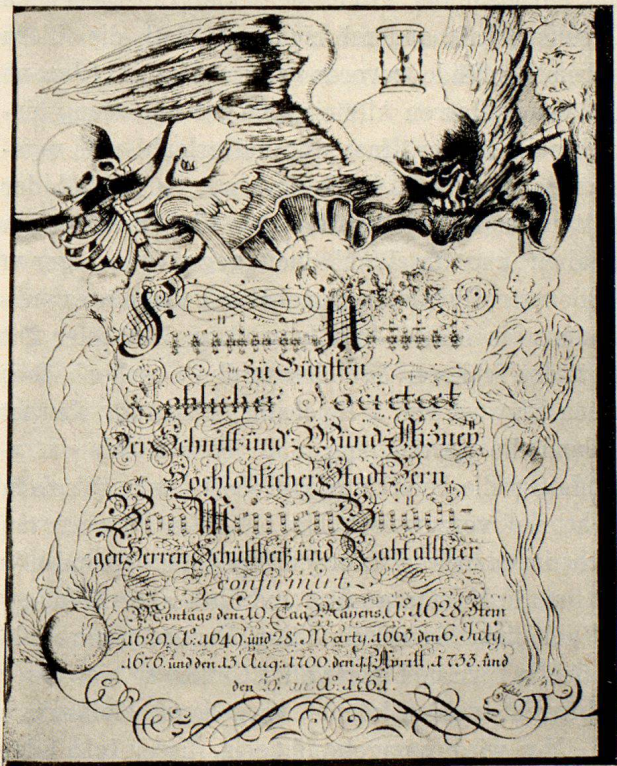 Zu Gunsten
Loblicher Societæt
Der Schnitt- und Wund-Artzney
Hochloblicher Stadt Bern
Von Meinen Gnädi-
gen Herren Schultheiß und Raht allhier
confirmirt.
Montags den 19. Tag Mayens, Aº 1628. Item
1629. Aº. 1649. und 28. Marty. 1663. den 6. July.
1676. und den 13. Aug. 1700. den Aprill. 1733. und
den Aº. 1761.